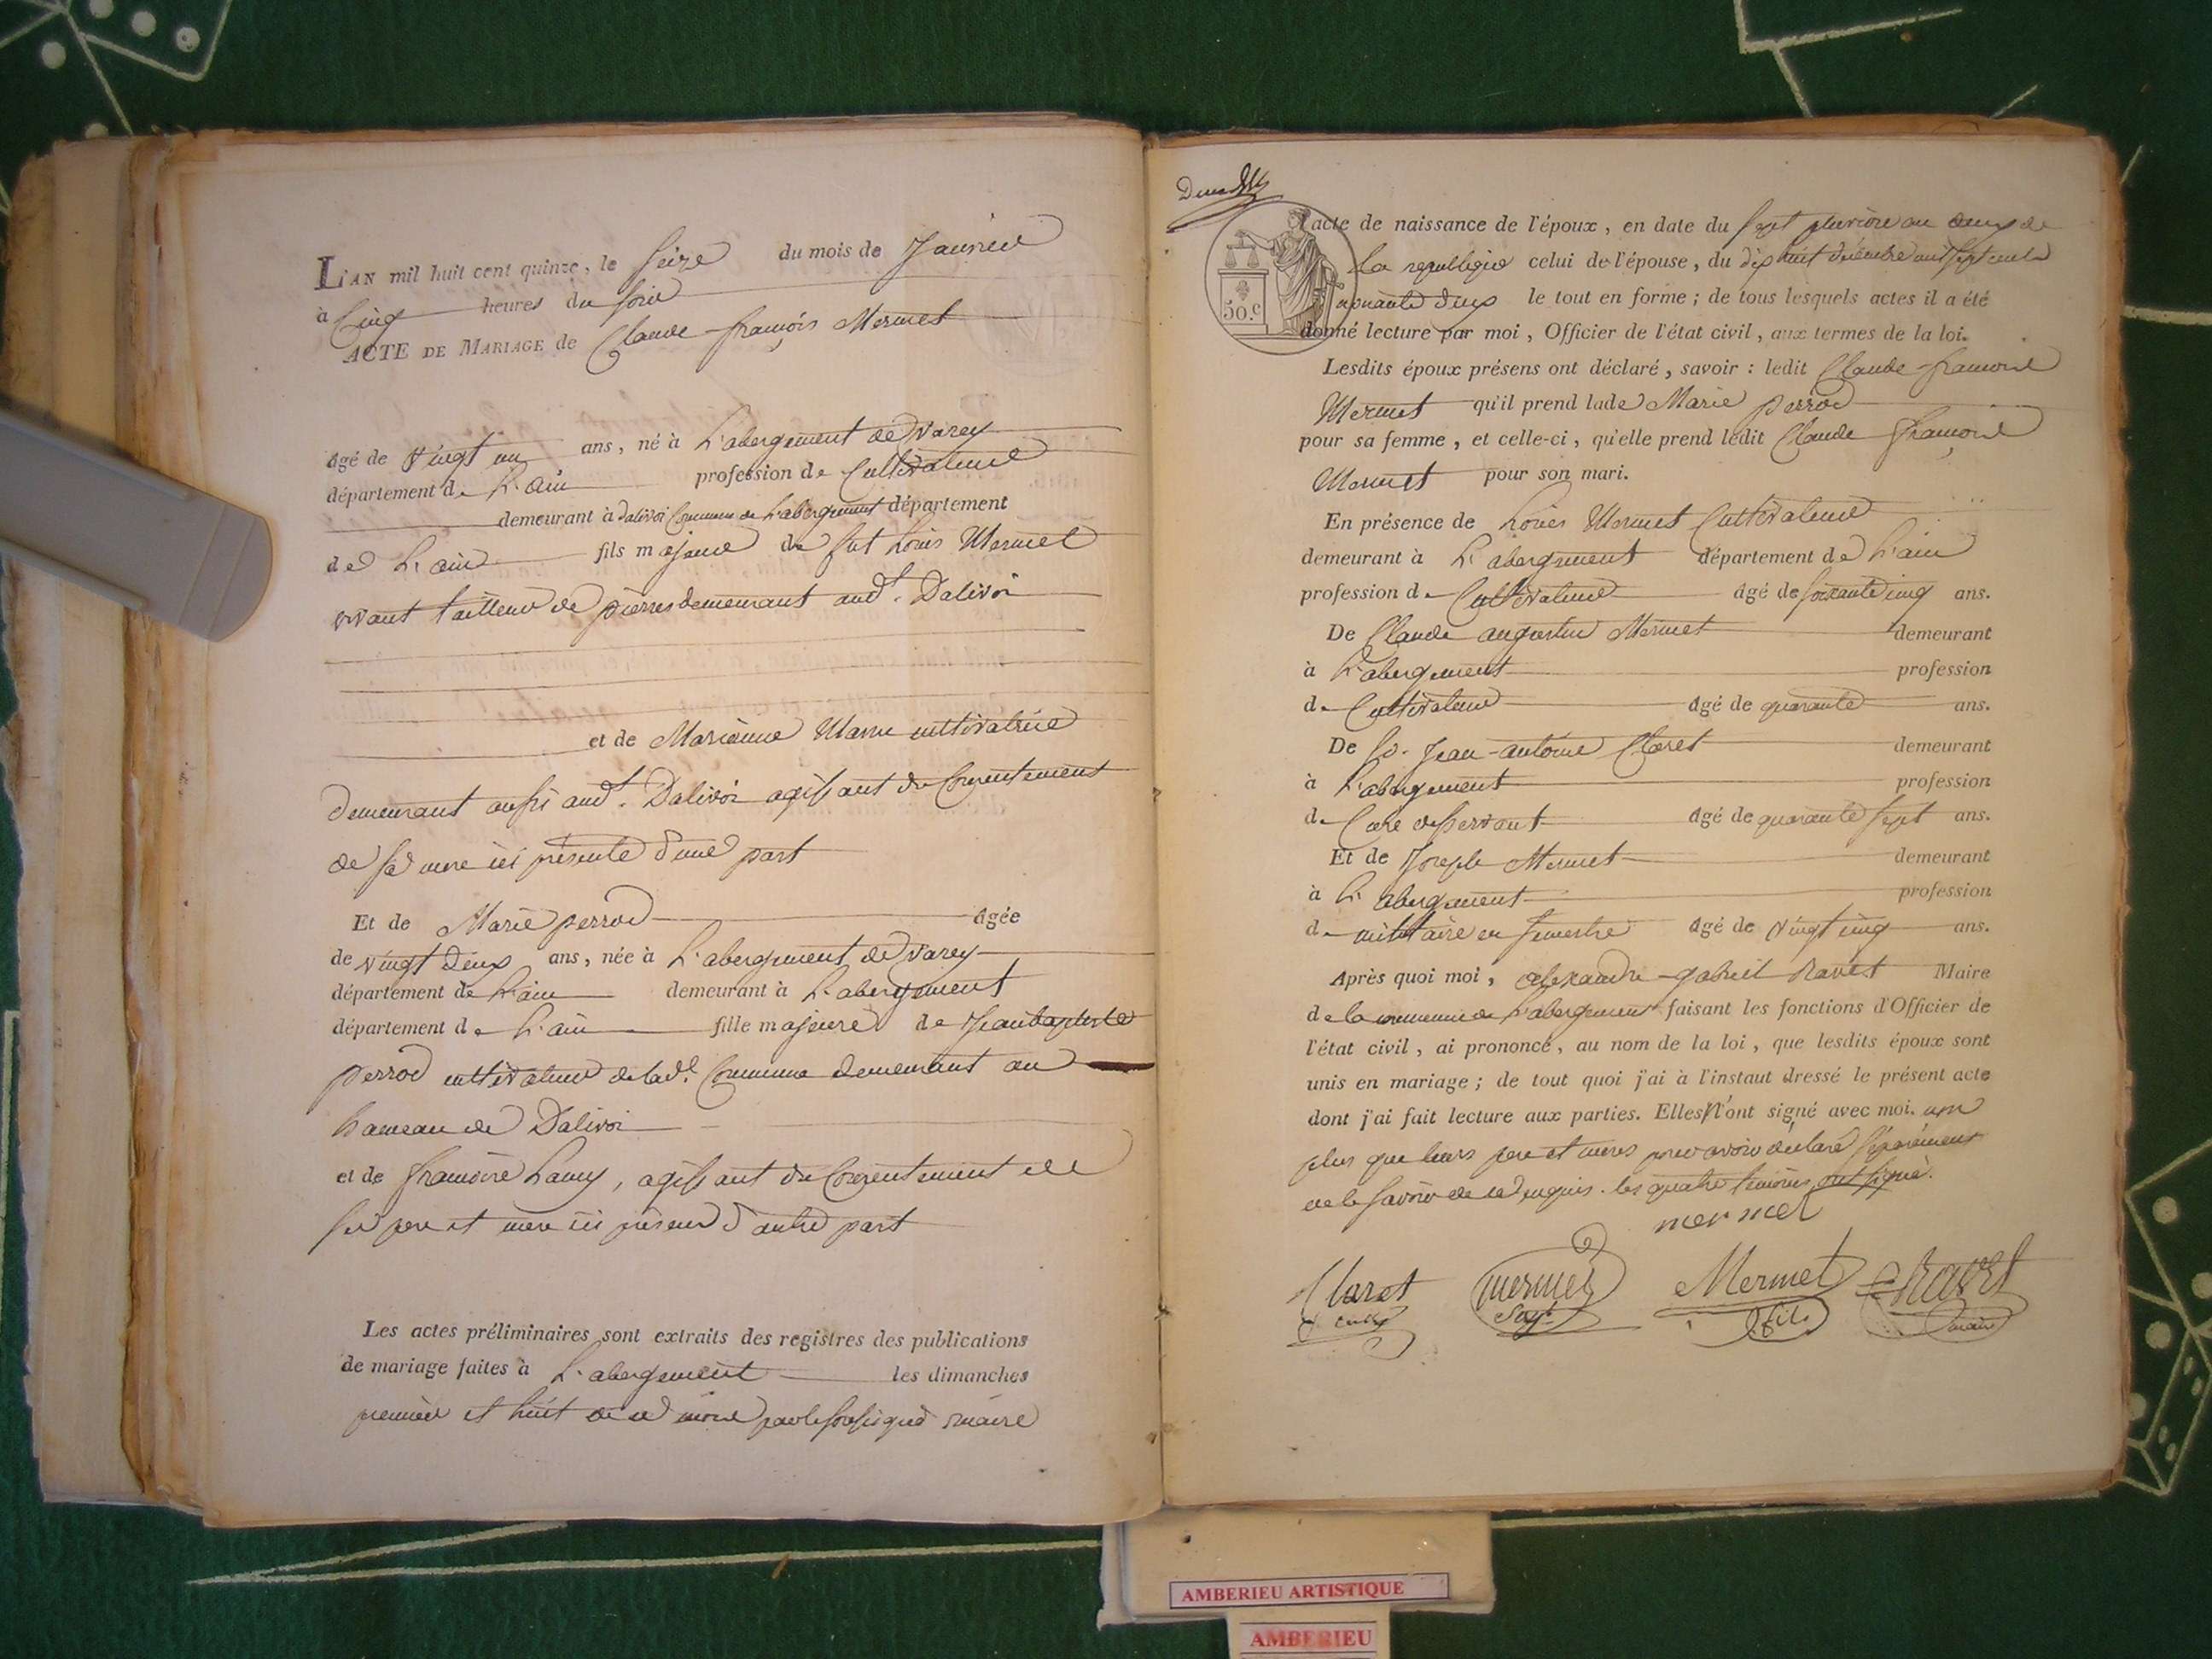 L'AN mil huit cent quinze, le seize du mois de Janvier
à Cinq heures du soir
ACTE DE MARIAGE de Claude françois Mermet
agé de vingt un ans, né à L'abergement de varey
département de L'ain profession de Cultivateur
demeurant à Dalivoi Commune de L'abergement département
de L'ain fils majeur de fut Louis Mermet
vivant tailleur de pierres demeurant aud.t Dalivoi
et de Marianne cultivatrice
demeurant aussi aud.t Dalivoi agissant du Consentement
de sa mere ici présente d'une part
Et de Marie perrod agée
de vingt deux ans, née à L'abergement de varey
département de L'ain demeurant à L'abergement
département de L'ain fille majeure de Jean baptiste
perrod cultivateur de lad.e Commune demeurant au
hameau de Dalivoi
et de françoise Lamy, agissant du Consentement de
ses pere et mere ici présens d'autre part
Les actes préliminaires sont extraits des registres des publications
de mariage faites à L'abergement les dimanches
premier et huit de ce mois par le soussigné maire
l'acte de naissance de l'époux, en date du sept pluviose an deux de
la republique celui de l'épouse, du dix huit décembre mil sept cent
nonante deux le tout en forme; de tous lesquels actes il a été
50.c
donné lecture par moi, Officier de l'état civil, aux termes de la loi.
Lesdits époux présens ont déclaré, savoir : ledit Claude françois
Mermet qu'il prend lade Marie perrod
pour sa femme, et celle-ci, qu'elle prend ledit Claude françois
Mermet pour son mari.
En présence de Louis Mermet Cultivateur
demeurant à L'abergement département de L'ain
profession de Cultivateur agé de soixante cinq ans.
De Claude augustin Mermet demeurant
à L'abergement profession
de Cultivateur agé de quarante ans.
De Sr. Jean-antoine Claret demeurant
à L'abergement profession
de Curé desservant agé de quarante sept ans.
Et de Joseph Mermet demeurant
à L'abergement profession
de militaire en semestre agé de vingt cinq ans.
Après quoi moi, alexandre gabriel Ravet Maire
de la commune de L'abergement faisant les fonctions d'Officier de
l'état civil, ai prononcé, au nom de la loi, que lesdits époux sont
unis en mariage; de tout quoi j'ai à l'instaut dressé le présent acte
dont j'ai fait lecture aux parties. Elles n'ont signé avec moi. non
plus que leurs pere et meres pour avoir déclaré séparément
ne le savoir de ce enquis. les quatre témoins ont signé.
mermet
Claret curé mermet Mermet fils Ravet maire
AMBERIEU ARTISTIQUE
AMBERIEU